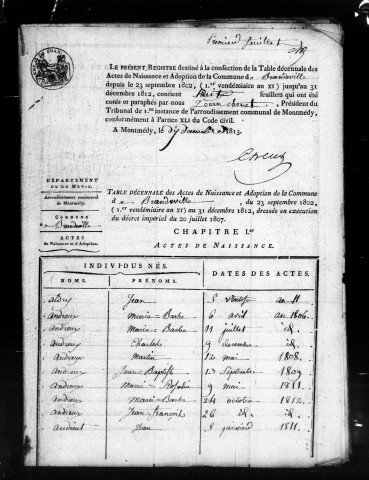 Premier feuillet
LE PRÉSENT REGISTRE destiné à la confection de la Table décennale des
Actes de Naissance et Adoption de la Commune de Brandeville
depuis le 23 septembre 1802, (1.er vendémiaire an XI) jusqu'au 31
décembre 1812, contenant huit feuillets qui ont été
cotés et paraphés par nous Jean chenet, Président du
Tribunal de 1.re instance de l'arrondissement communal de Montmédy,
conformément à l'article XLI du Code civil.
A MONTMÉDY, le 1813.
DÉPARTEMENT
DE LA MEUSE.
Arrondissement communal
de Montmédy.
COMMUNE
de Brandeville
ACTES
de Naissance et d'Adoption.
TABLE DÉCENNALE des Actes de Naissance et Adoption de la Commune
de Brandeville, du 23 septembre 1802,
(1.er vendémiaire an XI) au 31 décembre 1812, dressée en exécution
du décret impérial du 20 juillet 1807.
CHAPITRE I.er
ACTES DE NAISSANCE.
INDIVIDUS NÉS. DATES DES ACTES.
NOMS. PRÉNOMS.
Jean 5 ventose an 11
Andreux Marie-Barbe 6 avril an 1806
Andreux Marie-Barbe 11 juillet id.
Andreux Charlotte 9 decembre id.
Andreux Martin 12 mai 1808
Andreux Jean-Baptiste 13 septembre 1809
Andreux Marie-Rosalie 9 mai 1811
Andreux Marie-Barbe 24 octobre 1812
Andreux Jean-françois 26 id. id.
Audinet Jean 8 janvier 1811